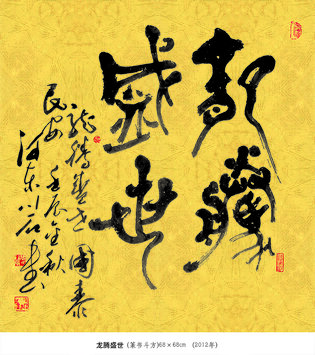 龍騰
盛世
龍騰盛世國泰
民安 壬辰金秋
河東川石書
龙腾盛世 (篆书斗方)68×68cm (2012年)